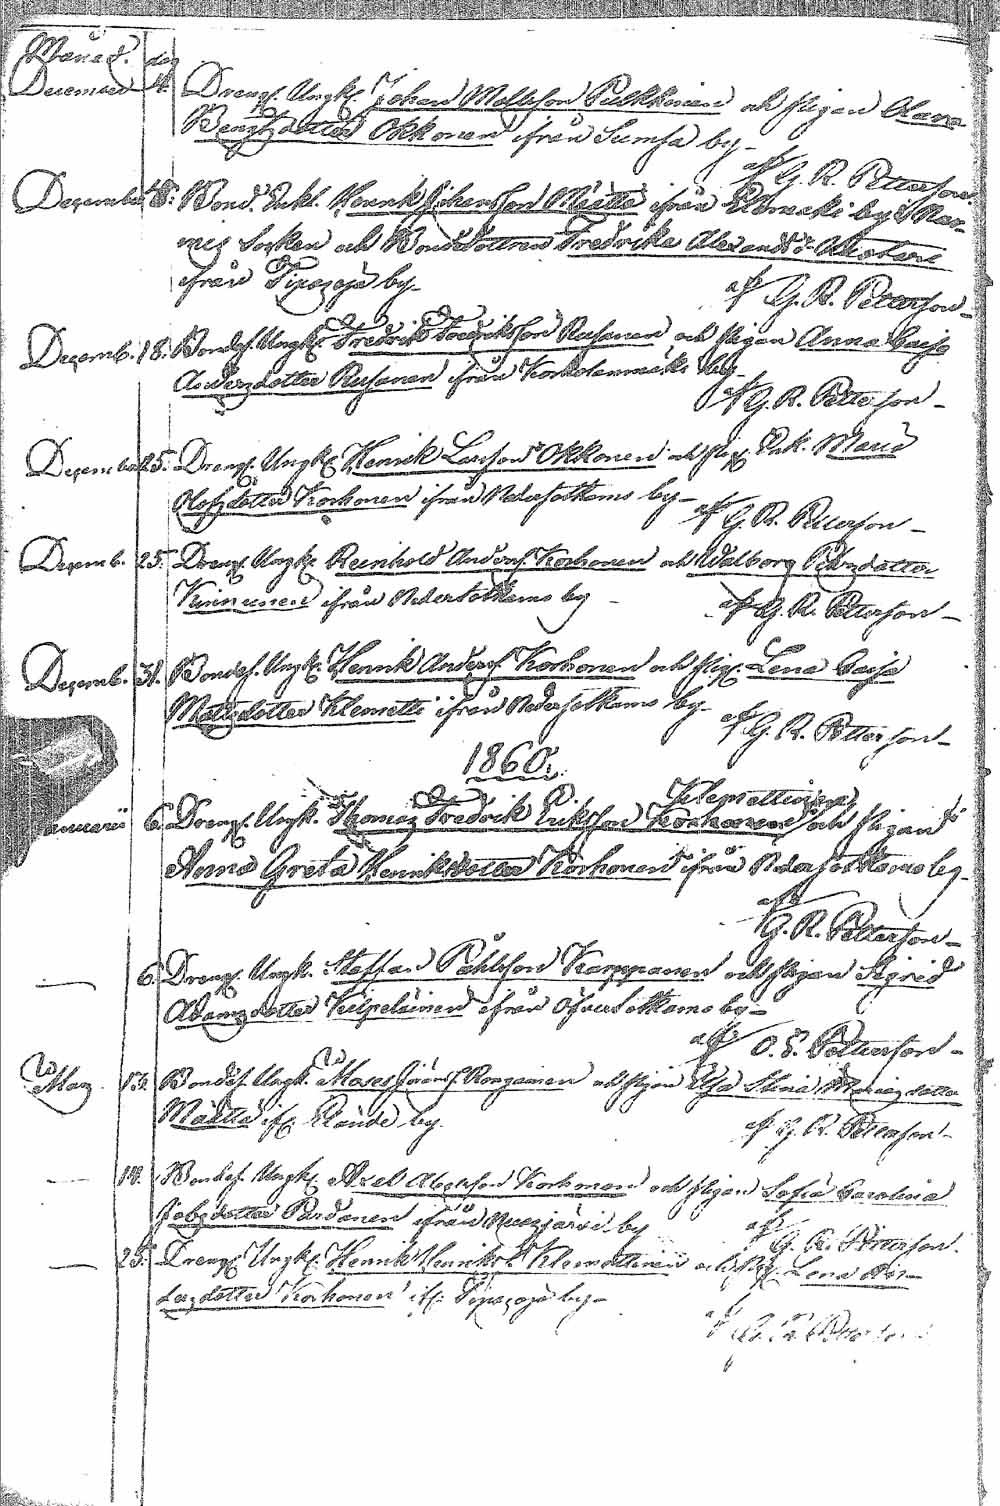 Månad. dag
December 4. Drengs. Ungk. Johan Mattsson Pulkkinen och Pigan
Bengtsdotter Okkonen ifrån Sumsa by-
af G. R. Petterson.
December 18. Bond. Enkl. Henrik Johansson Määttä ifrån by
Socken och Bondedottren Fredrika
ifrån Tipasoja by-
af G. R. Petterson-
Dezemb. 18. Bondes. Ungk. Fredrik Fredriksson Rusanen och Pigan Anna Caisa
Andersdotter Rusanen ifrån Korholanmäki by-
af G. R. Petterson-
Dezember 25. Drengs. Ungk. Henrik Larsson Okkonen och Enk. Maria
Olofsdotter Korhonen ifrån Nedersotkamo by-
af G. R. Petterson-
Dezemb. 25. Drengs. Ungk. Reinhold Anders. Korhonen och Walborg Petersdotter
Kinnunen ifrån Nedersotkamo by -
af G. R. Petterson-
Dezemb. 31. Bondes. Ungk. Henrik Anders. Korhonen och Pig. Lena Caisa
Matsdotter Klemetti ifrån Nedersotkamo by-
af G. R. Petterson-
1860.
Klemettinen
Januari 6. Drengs. Ungk. Thomas Fredrik Eriksson Korhonen och Pigan
Anna Greta Henriksdotter Korhonen ifrån Nedersotkamo by-
af G. R. Petterson-
— 6. Drengs. Ungk. Staffan Påhlsson Karppanen och Pigan Sigrid
Adamsdotter Kilpeläinen ifrån Öfversotkamo by-
af O. E. Petterson-
Marz 13. Bondes. Ungk. Moses Görans. Rongainen och Pigan Elsa Stina
Määttä ifr. by
af G. R. Petterson-
— 18. Bondes. Ungk. Axel Korhonen och Pigan Sofia Carolina
Jakobsdotter Pardanen ifrån by
af G. R. Petterson.
— 25. Drengs. Ungk. Henrik Henriks. Klemettinen och Pig. Lena An-
dersdotter Korhonen ifr. Tipasoja by-
af G. R. Petterson